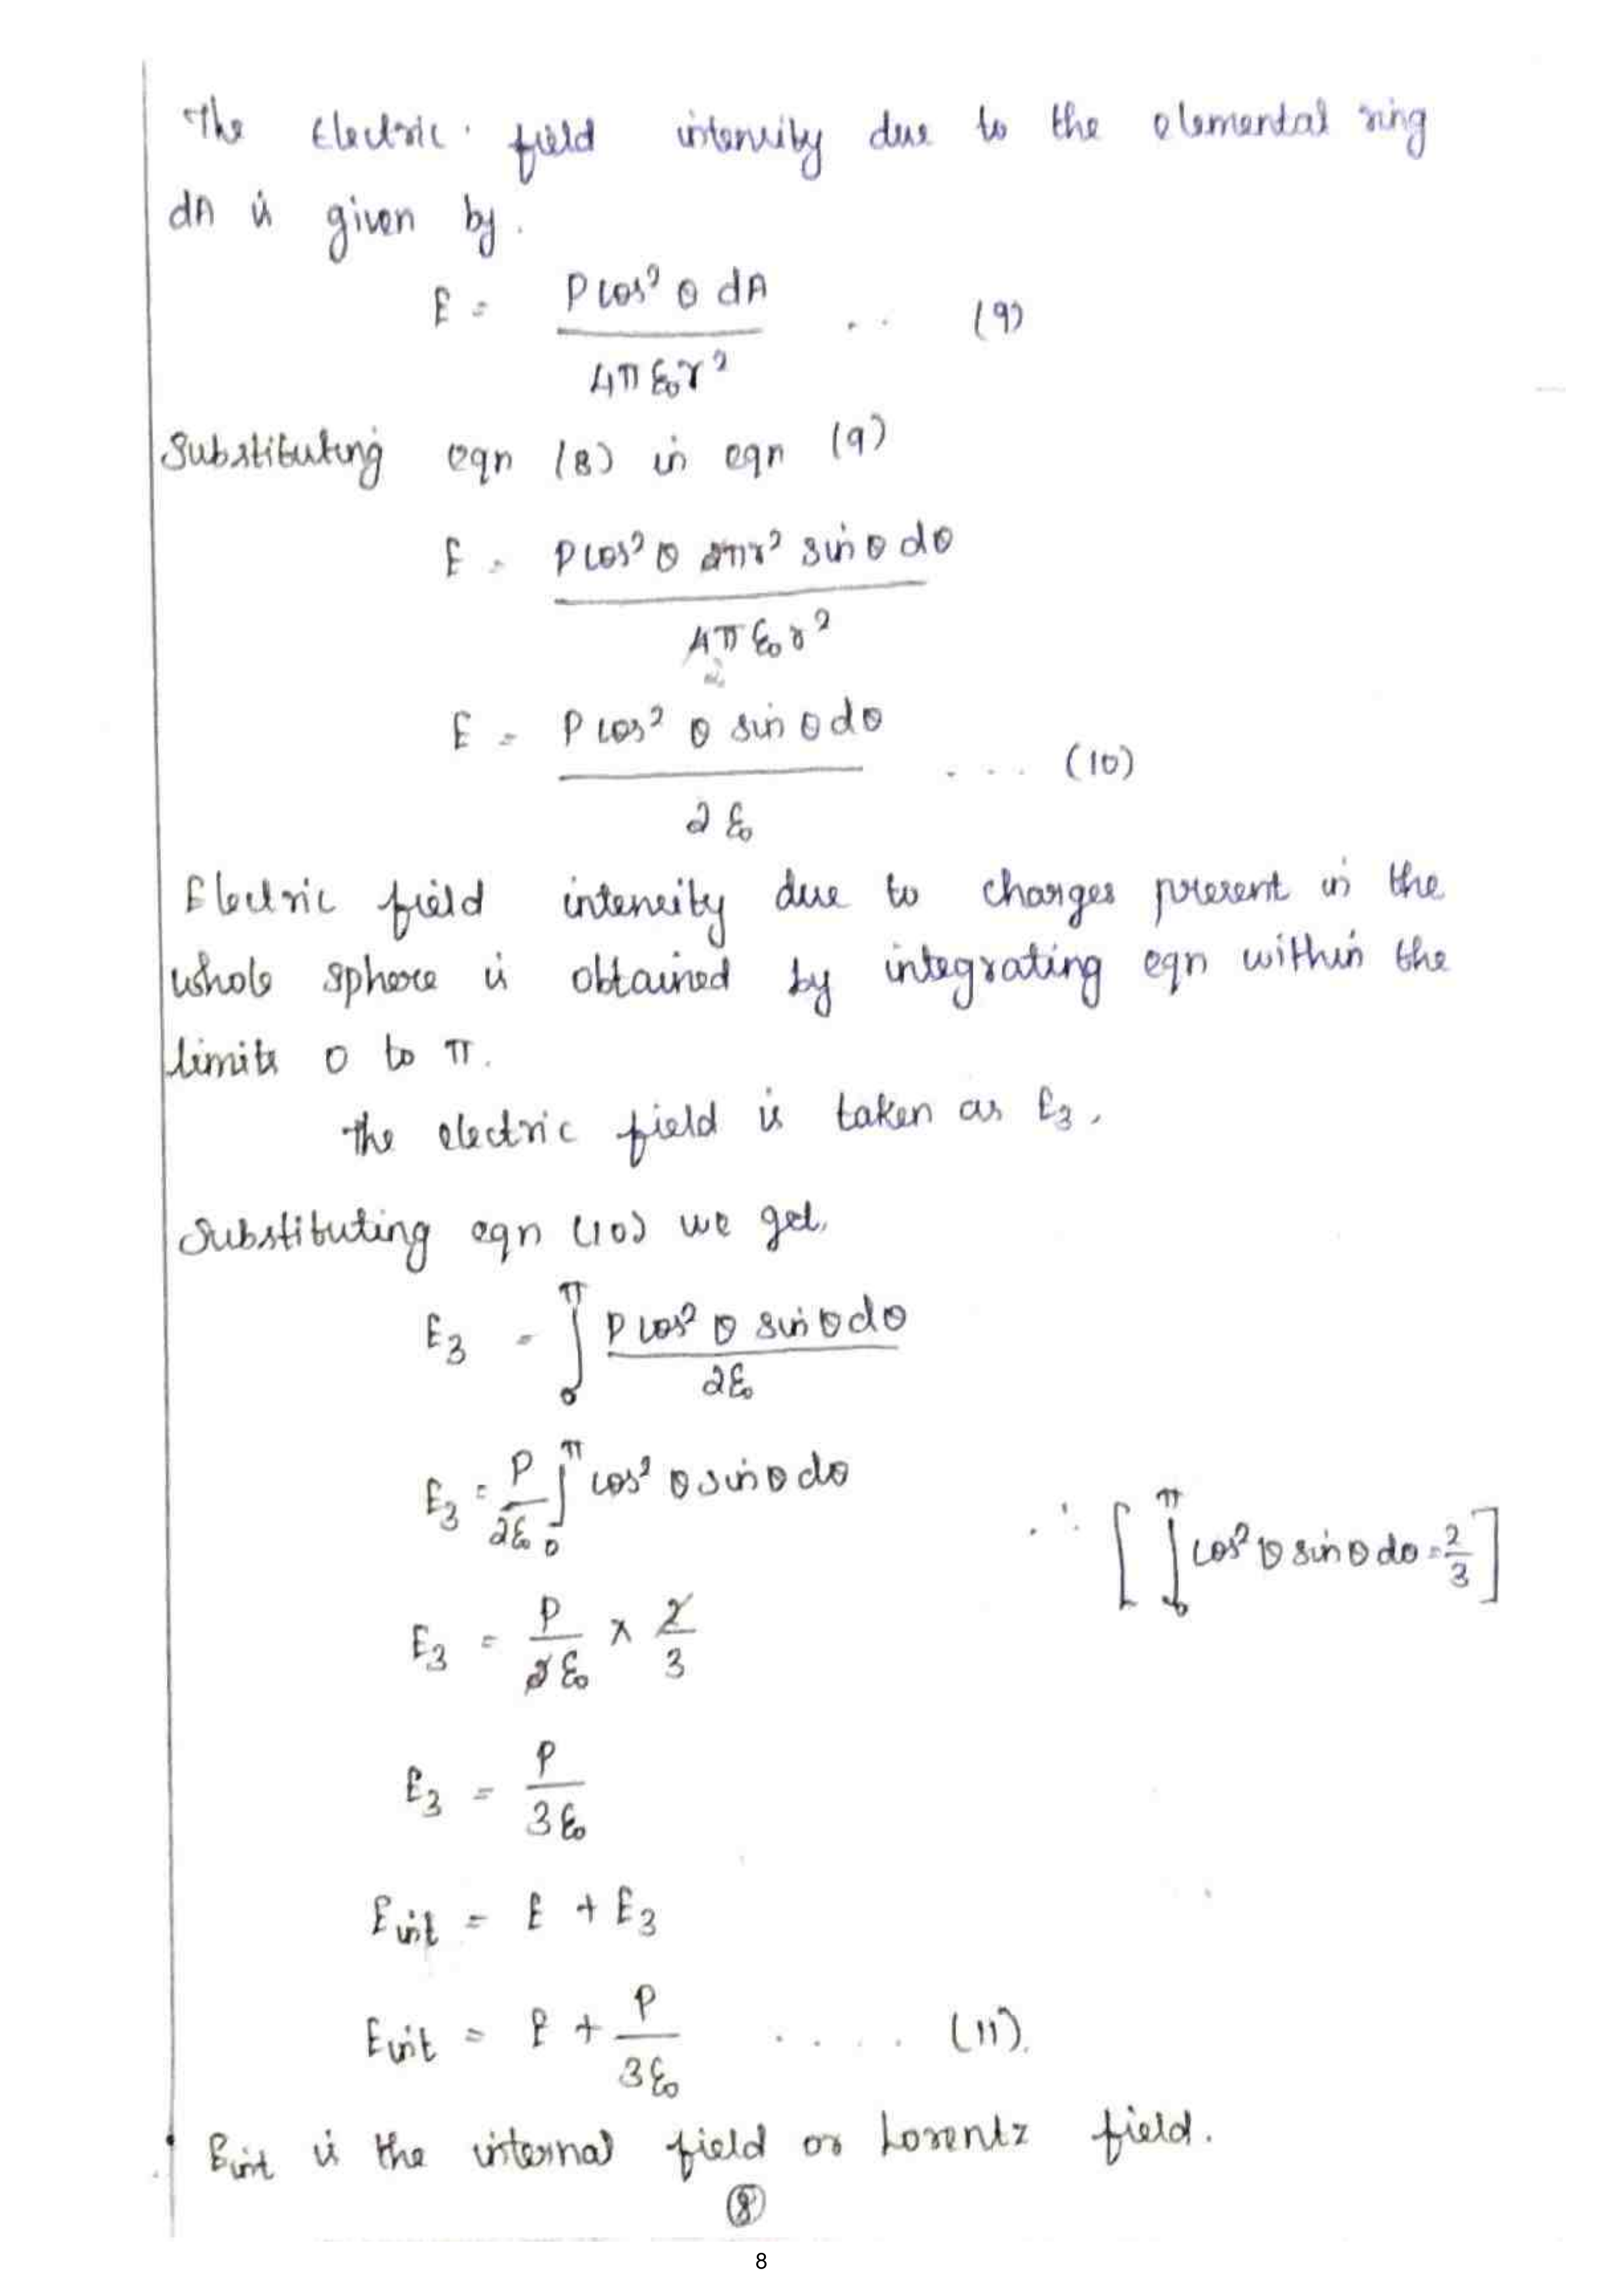 The Electric field intensity due to the elemental ring
dA is given by.
E = P cos² θ dA / 4π ε₀ r² .. (9)
Substituting eqn (8) in eqn (9)
E = P cos² θ 2πr² sin θ dθ / 4π ε₀ r²
E = P cos² θ sin θ dθ / 2 ε₀ .... (10)
Electric field intensity due to charges present in the
whole sphere is obtained by integrating eqn within the
limits 0 to π.
The electric field is taken as E₃.
Substituting eqn (10) we get,
E₃ = ∫₀^π P cos² θ sin θ dθ / 2ε₀
E₃ = P/2ε₀ ∫₀^π cos² θ sin θ dθ
∴ [ ∫₀^π cos² θ sin θ dθ = 2/3 ]
E₃ = P/2ε₀ × 2/3
E₃ = P/3ε₀
Eint = E + E₃
Eint = E + P/3ε₀ .... (11).
Eint is the internal field or Lorentz field.
8
8